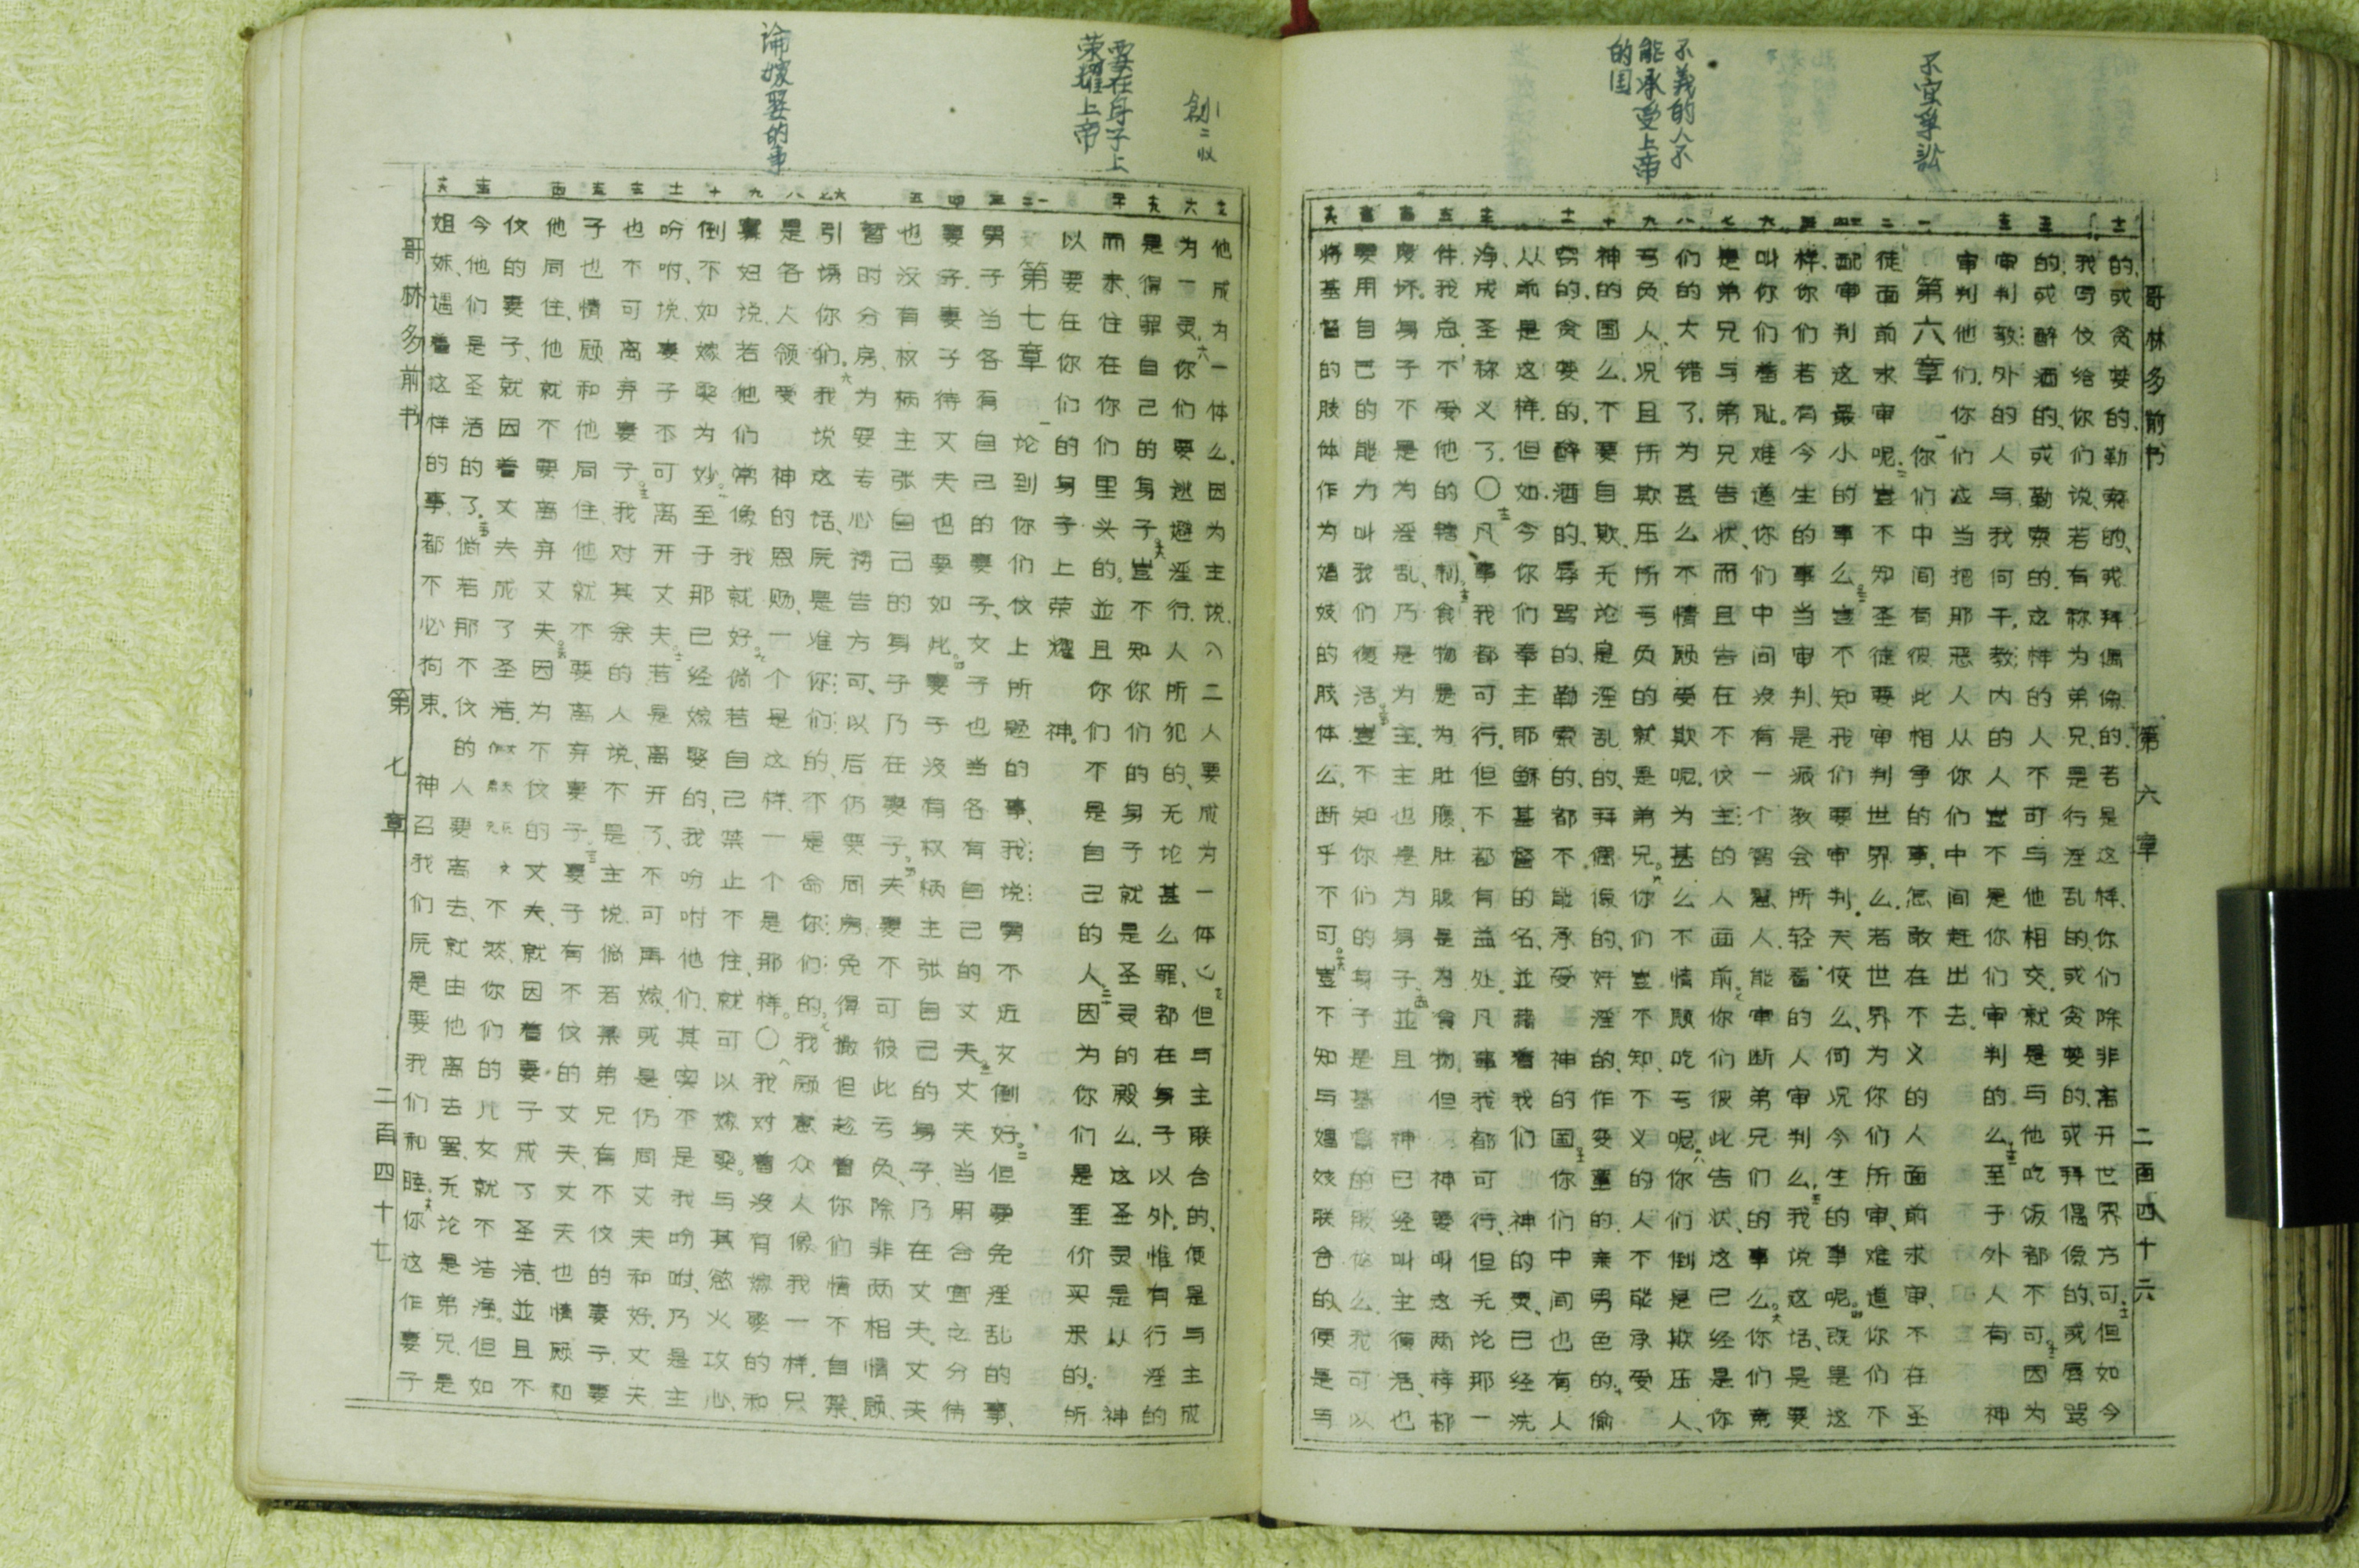 不宜争讼
不義的人不
能承受上帝
的国
哥林多前书 第六章 二百四十六
的、或贪婪的、勒索的、或拜偶像的、若是这样、你们除非离开世界方可、但如今
我写仗给你们说、若有称为弟兄是行淫乱的、或贪婪的、或拜偶像的、或辱骂
的、或醉酒的、或勒索的、这样的人不可与他相交、就是与他吃饭都不可。因为
审判教外的人与我何干、教内的人岂不是你们审判的么、至于外人有神
审判他们、你们应当把那恶人从你们中间赶出去。
第六章 你们中间有彼此相争的事、怎敢在不义的人面前求审、不在圣
徒面前求审呢、岂不知圣徒要审判世界么、若世界为你们所审、难道你们不
配审判这最小的事么、岂不知我们要审判天使么、何况今生的事呢。既是这
样、你们若有今生的事当审判、是派教会所轻看的人审判么、我说这话、是要
叫你们羞耻。难道你们中间没有一个智慧人、能审断弟兄们的事么。你们竟
是弟兄与弟兄告状、而且告在不仗主的人面前、你们彼此告状、这事已经是你
们的大错了、为甚么不情顾受欺呢、为甚么不情顾吃亏呢、你们倒是欺压人、
亏负人、况且所欺压所亏负的就是弟兄。你们岂不知、不义的人不能承受
神的国么、不要自欺、无论是淫乱的、拜偶像的、奸淫的、作娈童的、亲男色的、偷
窃的、贪婪的、醉酒的、辱骂的、勒索的、都不能承受神的国、你们中间也有人
从前是这样、但如今你们奉主耶稣基督的名、並藉着我们神的灵、已经洗
净、成圣称义了、〇凡事我都可行、但不都有益处、凡事我都可行、但无论那一
件、我总不受他的辖制、食物是为肚腹、肚腹是为食物、但神要叫这两样都
废坏。身子不是为淫乱、乃是为主、主也是为身子、並且神已经叫主復活、也
要用自己的能力叫我们復活、岂不知你们的身子是基督的肢体么、我可以
将基督的肢体作为娼妓的肢体么、断乎不可。岂不知与娼妓联合的、便是与
創二
要在身子上
荣耀上帝
论嫁娶的事
他成为一体么、因为主说、二人要成为一体、但与主联合的、便是与主成
为一灵、你们要逃避淫行、人所犯的、无论甚么罪、都在身子以外、惟有行淫的
是得罪自己的身子、岂不知你们的身子就是圣灵的殿么、这圣灵是从神
而来、住在你们里头的、並且你们不是自己的人、因为你们是至价买来的、所
以要在你们的身子上荣耀神。
第七章 论到你们仗上所题的事、我说:男不近女倒好。但要免淫乱的事、
男子当各有自己的妻子、女子也当各有自己的丈夫、丈夫当用合宜之分待
妻子、妻子待丈夫也要如此。妻子没有权柄主张自己的身子、乃在丈夫、丈夫
也没有权柄主张自己的身子、乃在妻子。夫妻不可彼此亏负、除非两相情顾
暂时分房、为要专心祷告方可、以后仍要同房、免得撒但趁着你们情不自禁、
引诱你们、我说这话、原是准你们的、不是命你们的。我顾意众人像我一样、只
是各人领受神的恩赐、一个是这样、一个是那样。〇我对着没有嫁娶的和
寡妇说、若他们常像我就好。倘若自己禁止不住、就可以嫁娶。与其慾火攻心、
倒不如嫁娶为妙。至于那已经嫁娶的、我吩咐他们、其实不是我吩咐、乃是主
吩咐说、妻子不可离开丈夫。若是离开了、不可再嫁、或是仍同丈夫和好、丈夫
也不可离弃妻子。我对其余的人说、不是主说、倘若某弟兄有不仗的妻子、妻
子也情顾和他同住、他就不要离弃妻子、妻子有不仗的丈夫、丈夫也情顾和
他同住、他就不要离弃丈夫。因为不仗的丈夫、就因着妻子成了圣洁、並且不
仗的妻子就因着丈夫成了圣洁、不然、你们的儿女就不洁净、但如
今他们是圣洁的了。倘若那不仗的人要离去、就由他离去罢、无论是弟兄、是
姐妹、遇着这样的事、都不必拘束、神召我们原是要我们和睦、你这作妻子
哥林多前书 第七章 二百四十七